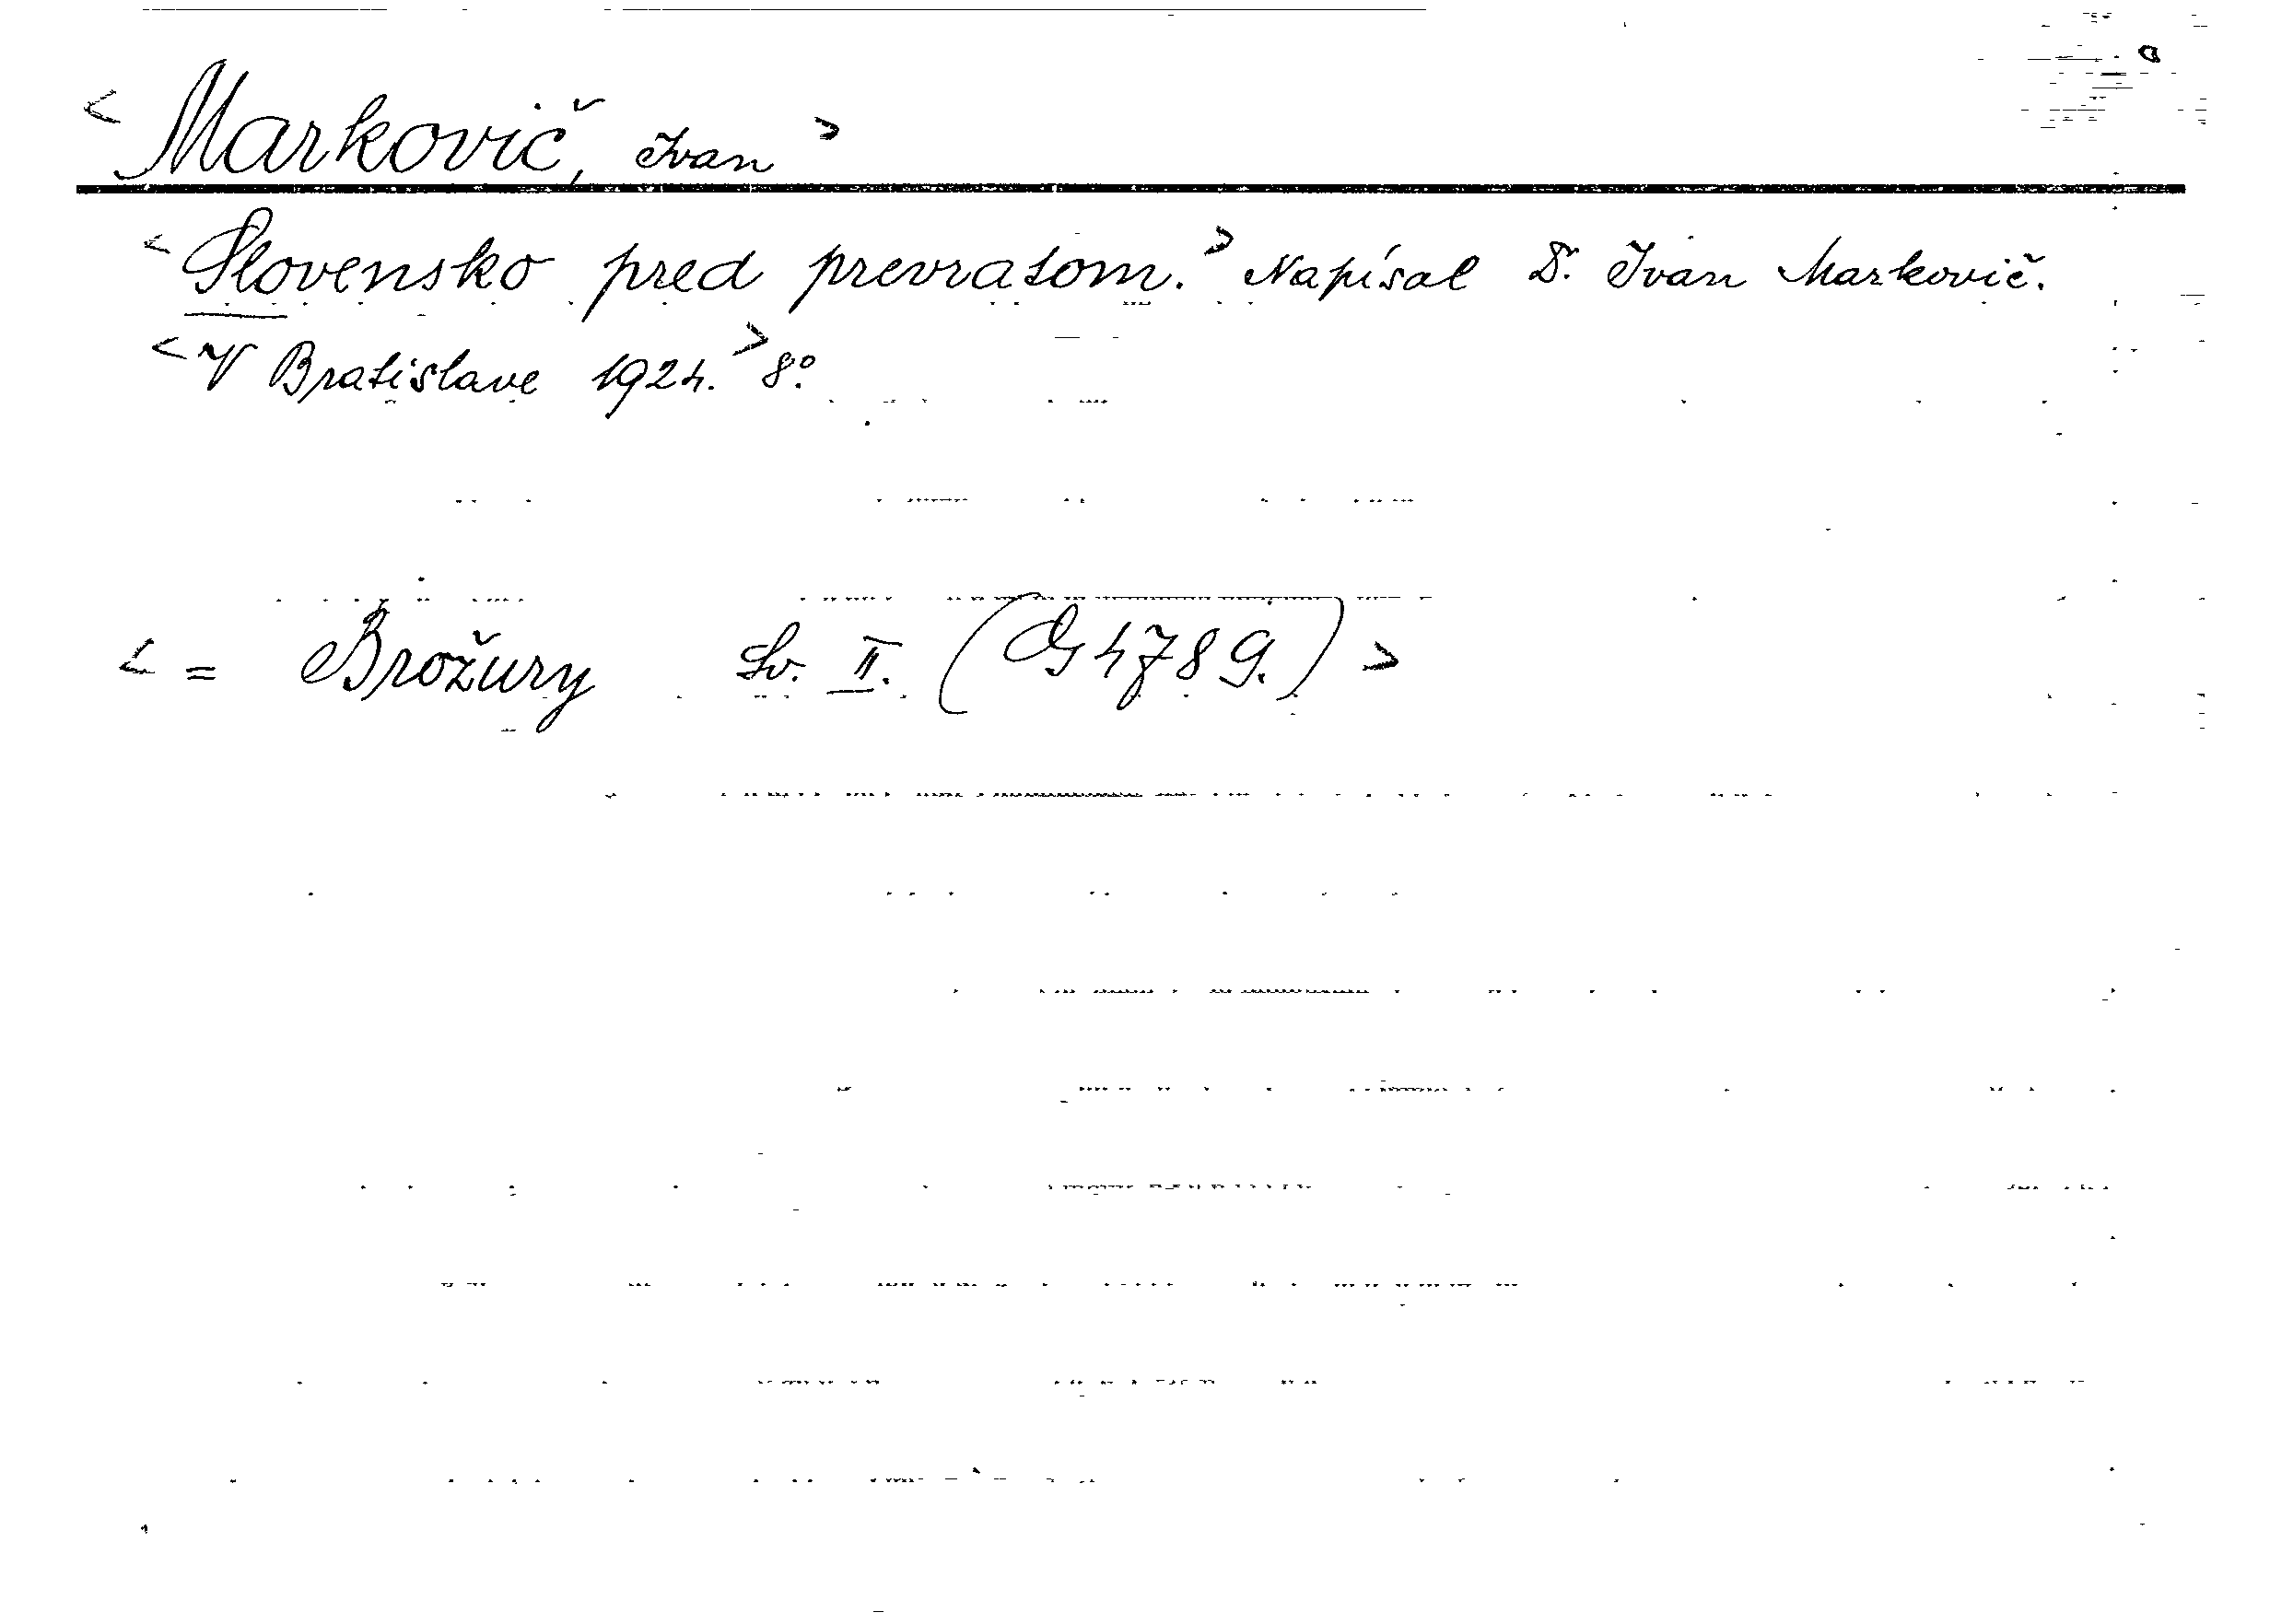 < Markovič, Ivan >
< Slovensko pred prevratom. > Napísal Dr. Ivan Markovič.
< V Bratislave 1924. > 8º.
< = Brožury Sv. II. (G 4789.) >